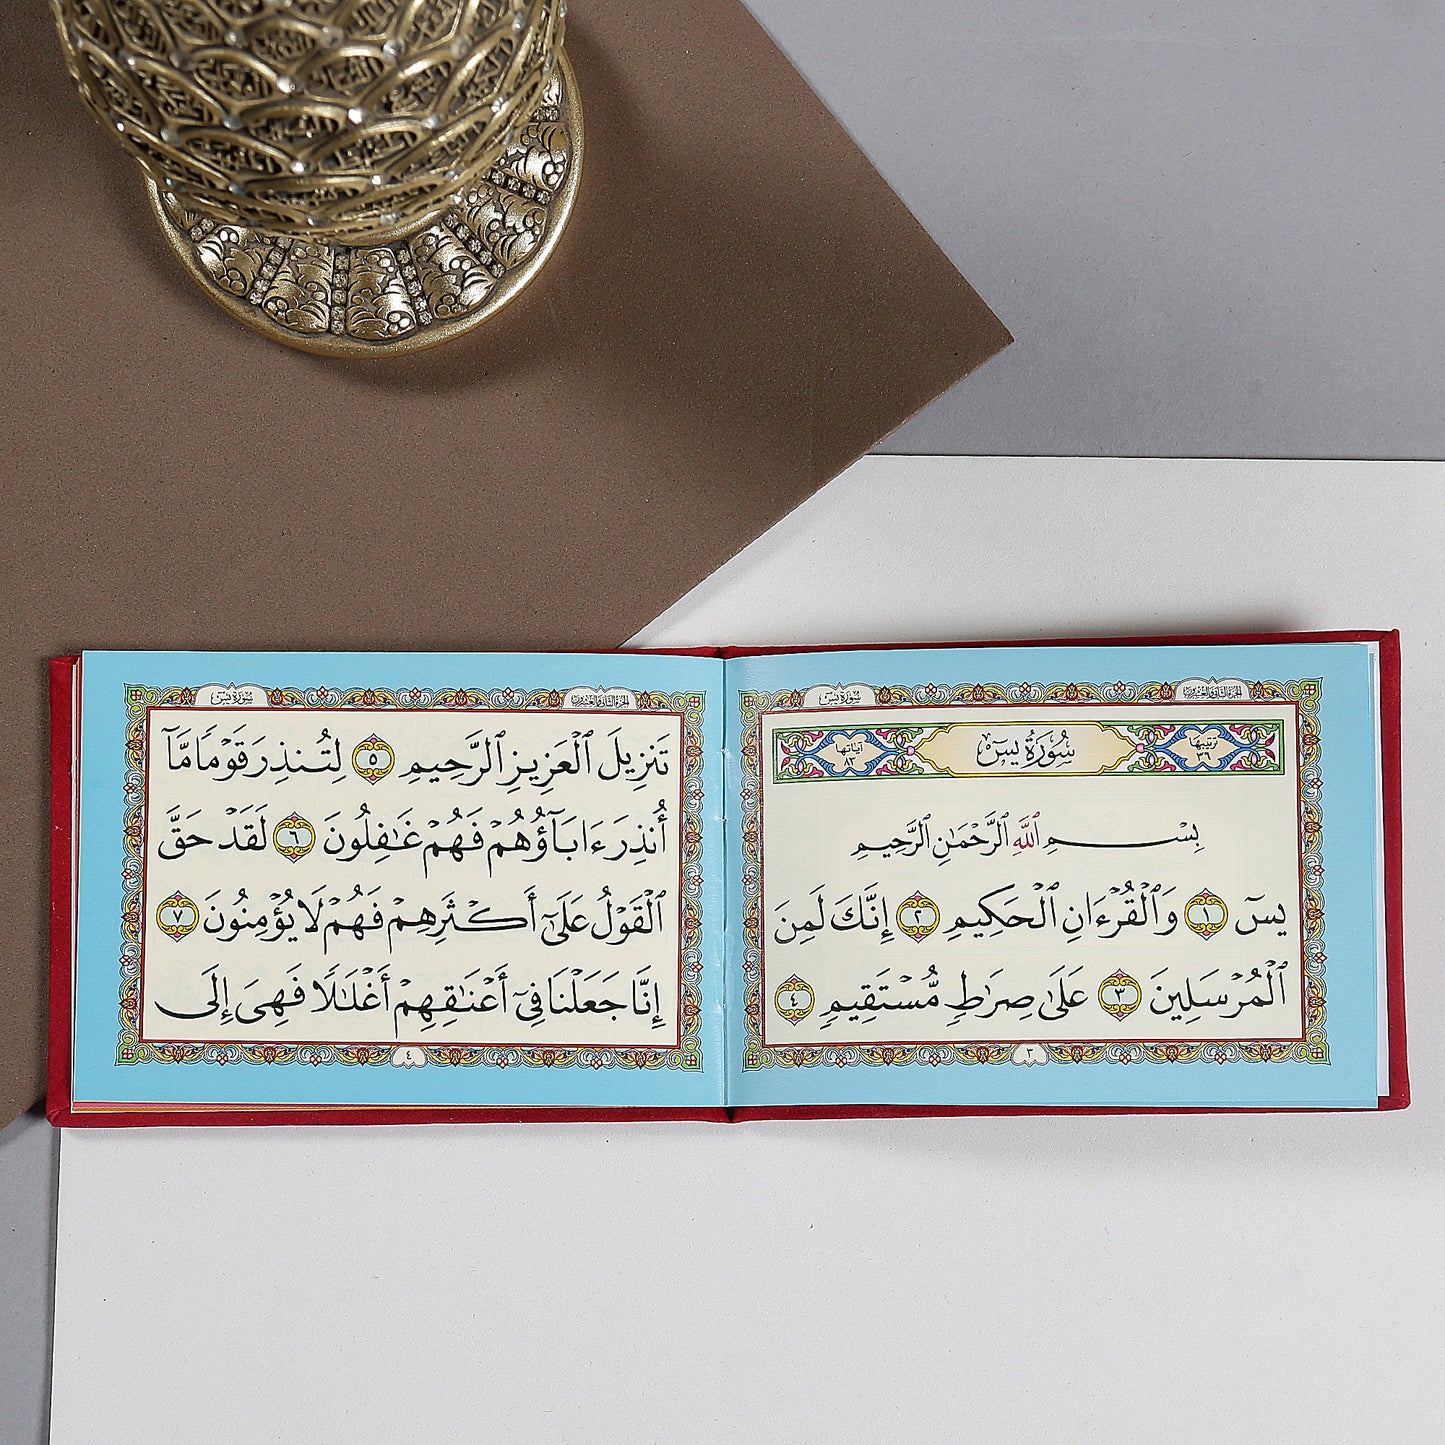 سُورَةُ يسٓ
الجزء الثاني والعشرون
ترتيبها
٣٦
سُورَةُ يسٓ
آياتها
٨٣
بِسْمِ ٱللَّهِ ٱلرَّحْمَٰنِ ٱلرَّحِيمِ
يسٓ ١ وَٱلْقُرْءَانِ ٱلْحَكِيمِ ٢ إِنَّكَ لَمِنَ
ٱلْمُرْسَلِينَ ٣ عَلَىٰ صِرَٰطٍ مُّسْتَقِيمٍ ٤
٣
سُورَةُ يسٓ
الجزء الثاني والعشرون
تَنزِيلَ ٱلْعَزِيزِ ٱلرَّحِيمِ ٥ لِتُنذِرَ قَوْمًا مَّآ
أُنذِرَ ءَابَآؤُهُمْ فَهُمْ غَٰفِلُونَ ٦ لَقَدْ حَقَّ
ٱلْقَوْلُ عَلَىٰٓ أَكْثَرِهِمْ فَهُمْ لَا يُؤْمِنُونَ ٧
إِنَّا جَعَلْنَا فِىٓ أَعْنَٰقِهِمْ أَغْلَٰلًا فَهِىَ إِلَى
٤